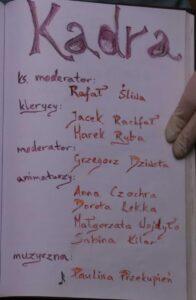 Kadra
ks. moderator:
Rafał Śliwa
klerycy:
Jacek Rachfał
Marek Ryba
moderator:
Grzegorz
animatorzy:
Anna Czochra
Dorota Lekka
Małgorzata Wojdyło
Sabina Kilar
muzyczna:
Paulina Przekupień